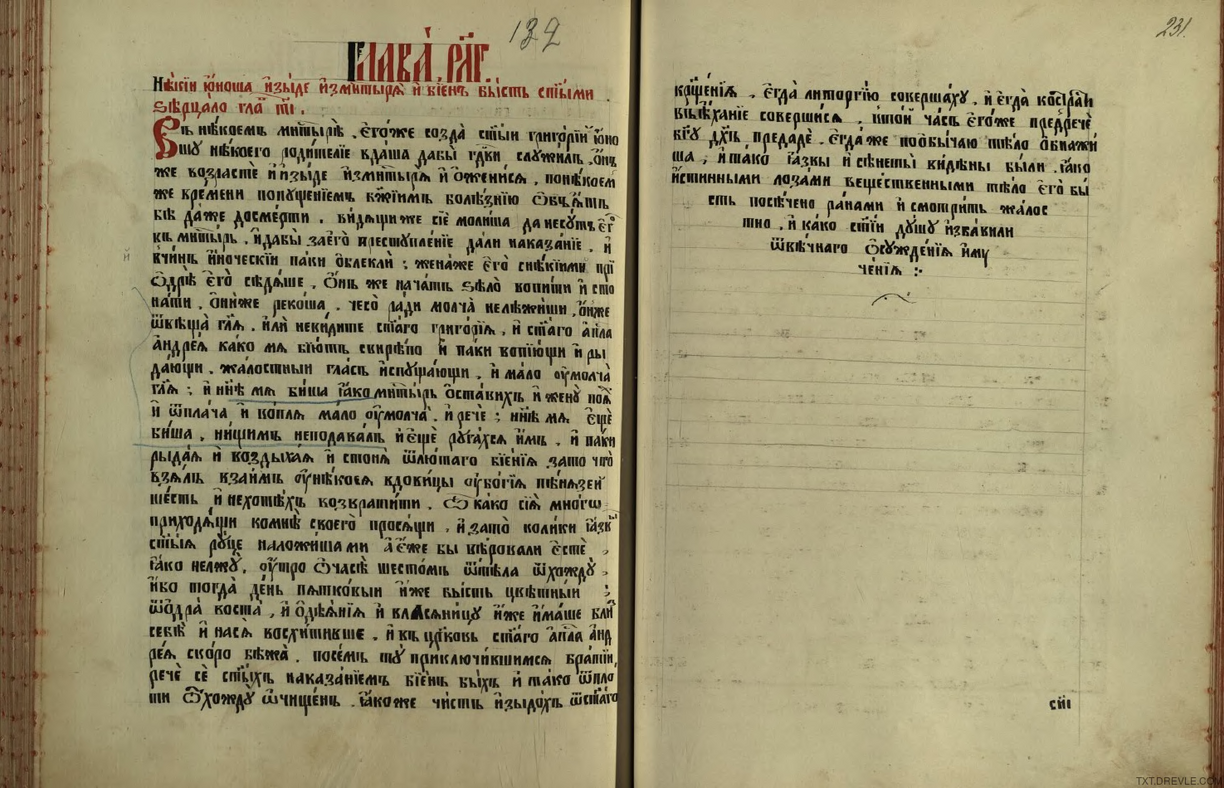 132
Глава̀ , рл҃г .
Нѣ́кїи ю҆́ноша и҆зы́де и҆змнтырѧ̀ и҆ бїе́нъ бы́сть ст҃ы́ми .
Ѕѣ́рцало гла̀ т҃і .
Въ нѣ́коемъ мнтырѣ̀ , є҆го́же созда̀ ст҃ы́и григо́рїи ю҆но
шу нѣ́коего роди́телїе вда́ша дабы̀ гд҇ви служи́лъ . ѻ҆́нъ
же возрасте́ и҆ и҆зы́де и҆змнтырѧ̀ и҆ ѡ҆жени́сѧ , понѣ́коем
же времени попуще́нїемъ бж҃їимъ болѣ́знїю ѡ҆б̾ѧ́тъ
бѣ̀ да́же досме́рти . ви́дѧщиже сїѐ моли́ша данесу́тъ є҆г
въ мнты́рь , и҆дабы̀ заег҆ѡ̀ преступле́нїе да́ли наказа́нїе , и҆
вчи́нъ и҆́ноческїи па́ки ѡ҆блеклѝ : жена́же є҆гѡ̀ снѣ́кїими при
ѻ҆дрѣ̀ є҆гѡ̀ сѣдѧ́ше . ѻ҆́нъ же нача́тъ ѕѣлѡ̀ вопи́ти и҆ сто
на́ти . ѻ҆ни́же реко́ша , чесо̀ ра́ди молча̀ нележи́ши , ѻ҆́нже
ѿвѣща̀ гл҃ѧ . и҆лѝ неви́дите ст҃а́го григо́рїѧ , и҆ ст҃а́го а҆п҇ла
андре́ѧ како мѧ̀ бїю́тъ свирѣ́по и҆ па́ки вопїю́щи и҆ ры
да́ющи . жа́лостныи гла́съ и҆спуща́ющи , и҆ ма́ло ѹ҆молча̀
гл҃ѧ ; и҆ нн҃ѣ мѧ би́ша ꙗ҆́ко мнты́рь ѡ҆ста́вихъ и҆ жену̀ поѧ̀
и҆ ѿпла́ча и҆ во́плѧ мало ѹ҆молча̀ . и҆ речѐ ; нн҃ѣ мѧ̀ є҆щѐ
би́ша , ни́щимъ неподава́лъ и҆ є҆щѐ руга́хсѧ и҆́мъ , и҆ па́ки
рыда́ѧ и҆ воздыха́ѧ и҆ стонѧ̀ ѿлю́таго бїе́нїѧ зато̀ что̀
взѧ́лъ вза́имъ ѹ҆нѣ́коеѧ вдови́цы ѹ҆бо́гїѧ пѣ́нѧзеи
ше́сть и҆ нехотѣ́хъ возврати́ти . Ѽ како сїѧ̀ мно́гѡ
приходѧ́щи комнѣ̀ своего̀ просѧ́щи , и҆ зато̀ коли́ки ꙗ҆́зв
ст҃ы́ѧ ру́це наложи́ша ми а҆ є҆́же бы вѣ́ровали є҆стѐ ,
ꙗ҆́ко нелжу̀ , ѹ҆́тро ѡ҆ча́сѣ шесто́мъ ѿтѣ́ла ѿхожду̀ ,
и҆бо тогда̀ де́нь пѧтко́выи и҆́же бы́сть цвѣ́тныи ;
ѿѻдра̀ воста̀ , и҆ ѻ҆дѣѧ́нїѧ и҆ власѧни́цу и҆́же и҆мѧ́ше бли
себѐ и҆ насѧ̀ восхи́тивше , и҆ въ цр҃ковь ст҃а́го а҆п҇ла анд
ре́ѧ ско́ро бѣжа̀ . посе́мъ ту̀ приключи́вшимсѧ бра́тїи ,
речѐ сѐ ст҃ы́хъ наказа́нїемъ бїе́нъ бы́хъ и҆ та́ко ѿпло
ти ѿхожду̀ ѡ҆чище́нъ . ꙗ҆́коже чи́стъ и҆зыдо́хъ ѿст҃а́го
231.
крщ҃е́нїѧ . є҆гда̀ литѡргі́ю соверша́ху , и҆ є҆гда̀
выѣ́ханїе соверши́сѧ , вто́й ча́съ є҆го́же предречѐ
бг҃у дх҃ъ , предадѐ . є҆гда́же поѻбы́чаю тѣ́ло ѻ҆бнажи
ша , и҆ тако ꙗ҆́звы и҆ си́неты ви́дѣны бы́ли . ꙗ҆́ко
и҆́стинными ло́зами веще́ственными тѣ́ло є҆гѡ̀ бы
сть посѣ́чено ра́нами и҆ смотри́ть жа́лос
тно , и҆ ка́ко ст҃і́и ду́шу и҆зба́вили
ѿвѣ́чнаго ѡ҆сужде́нїѧ и҆ му
че́нїѧ :·
TXT.DREVLE.COM